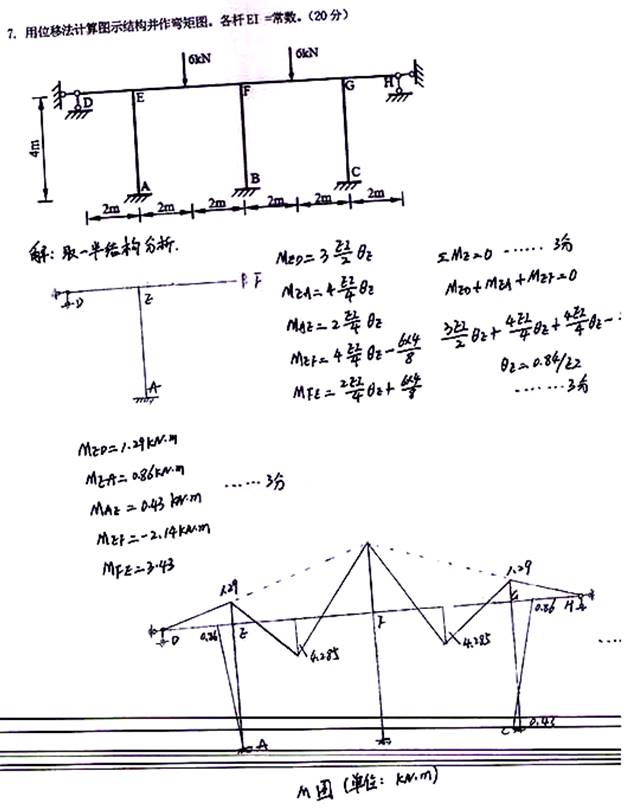 7. 用位移法计算图示结构并作弯矩图。各杆EI =常数。(20分)
6kN 6kN
D E F G H
4m
A B C
2m 2m 2m 2m 2m 2m
解: 取一半结构分析.
D E F
A
M_ED = 3 EI/2 θ_E
M_EA = 4 EI/4 θ_E
M_AE = 2 EI/4 θ_E
M_EF = 4 EI/4 θ_E - 6×4/8
M_FE = 2EI/4 θ_E + 6×4/8
ΣM_E = 0 ······ 3分
M_ED + M_EA + M_EF = 0
3EI/2 θ_E + 4EI/4 θ_E + 4EI/4 θ_E -
θ_E = 0.86/EI
······· 3分
M_ED = 1.29kN·m
M_EA = 0.86kN·m
M_AE = 0.43 kN·m
M_EF = -2.14kN·m
M_FE = 3.43
······ 3分
1.29 1.29
D 0.86 E F G 0.86 H
4.285 4.285
A C 0.43
M图 (单位: kN·m)